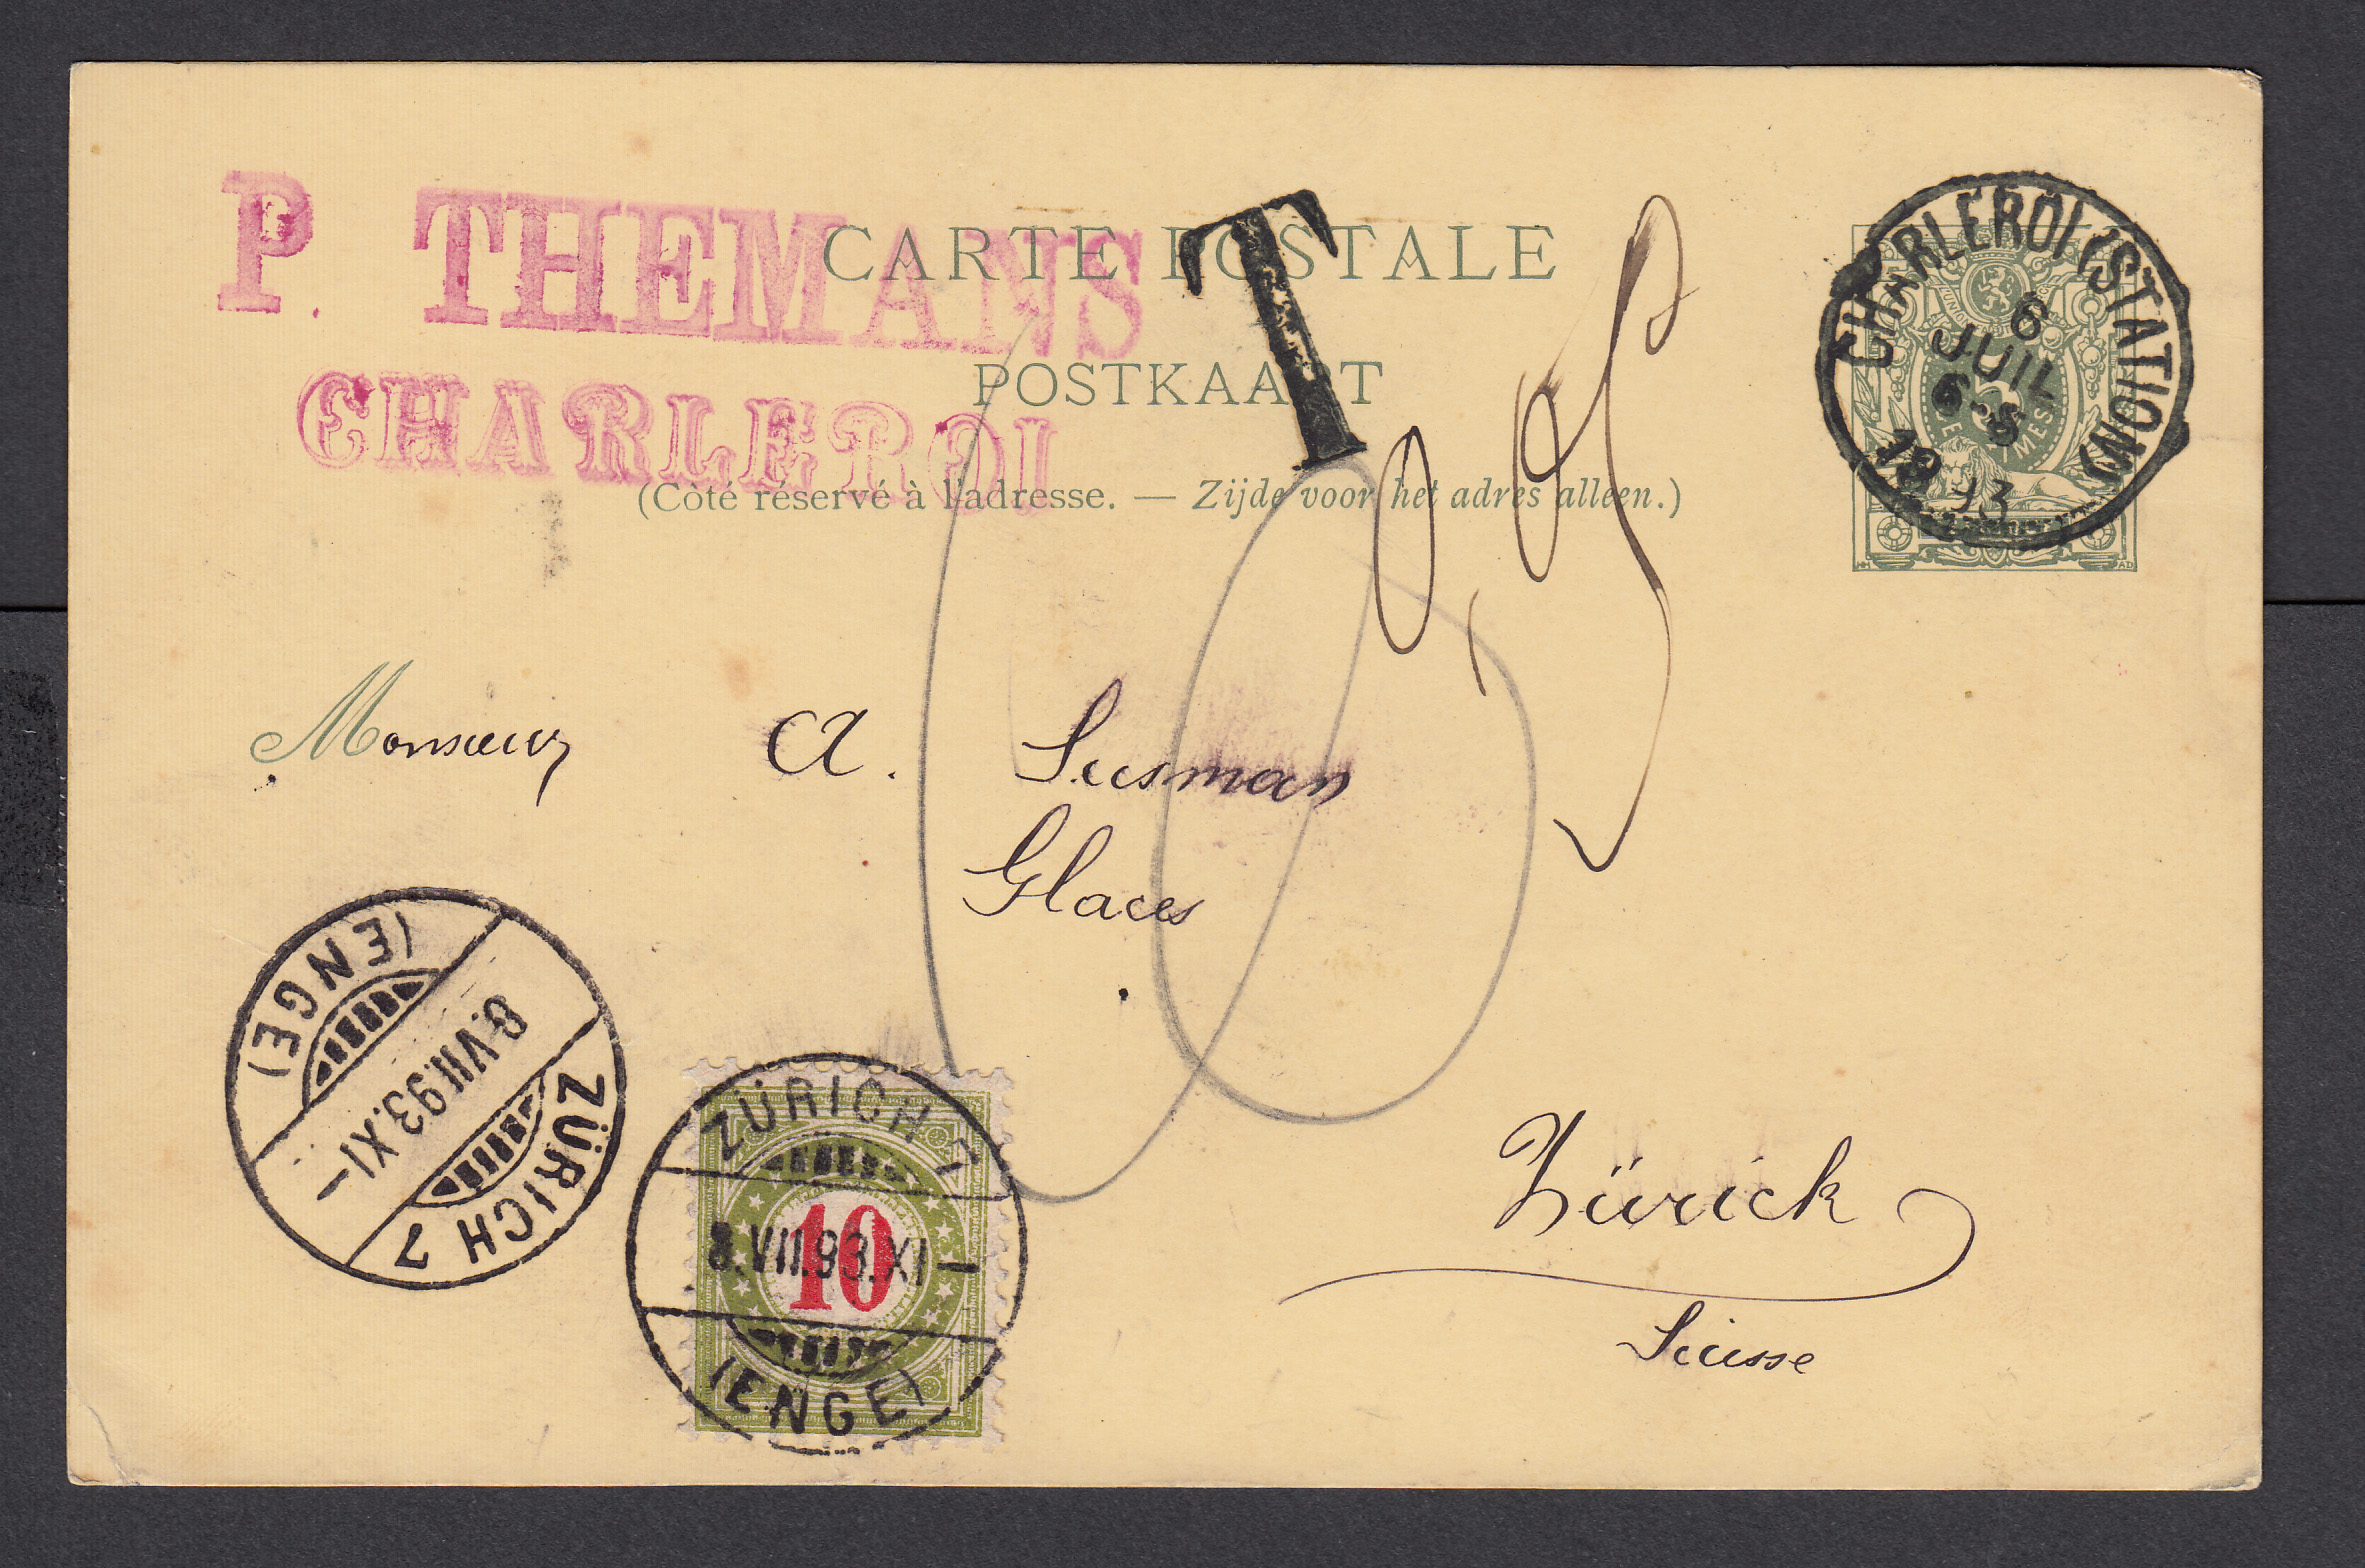 P. THEMANS
CHARLEROI
CARTE POSTALE
POSTKAART
(Côté réservé à l'adresse. — Zijde voor het adres alleen.)
T
0,05
10
CHARLEROI (STATION)
6
JUIL
6-S
1893
Monsieur A. Susman
Glaces
Zürich
Suisse
ZÜRICH 7
8.VII.93.XI—
(ENGE)
ZÜRICH 7
8.VII.93.XI—
(ENGE)
10